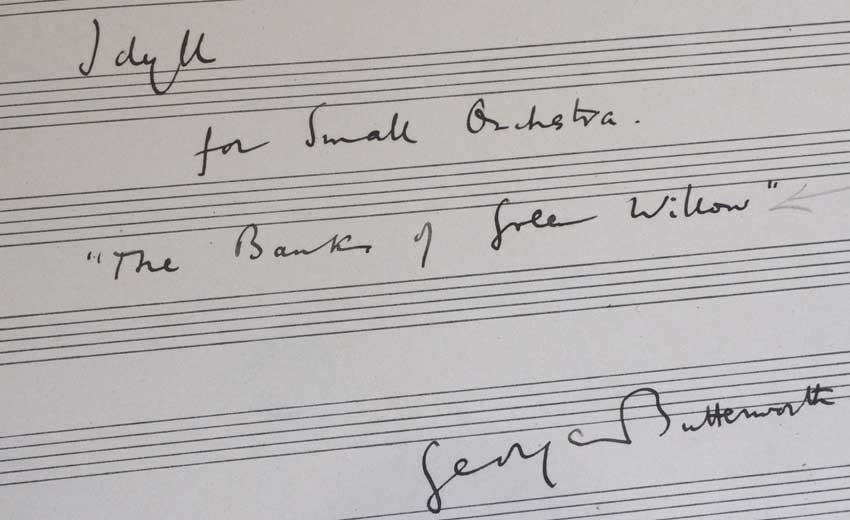 Idyll
for Small Orchestra.
"The Banks of Green Willow"
George Butterworth